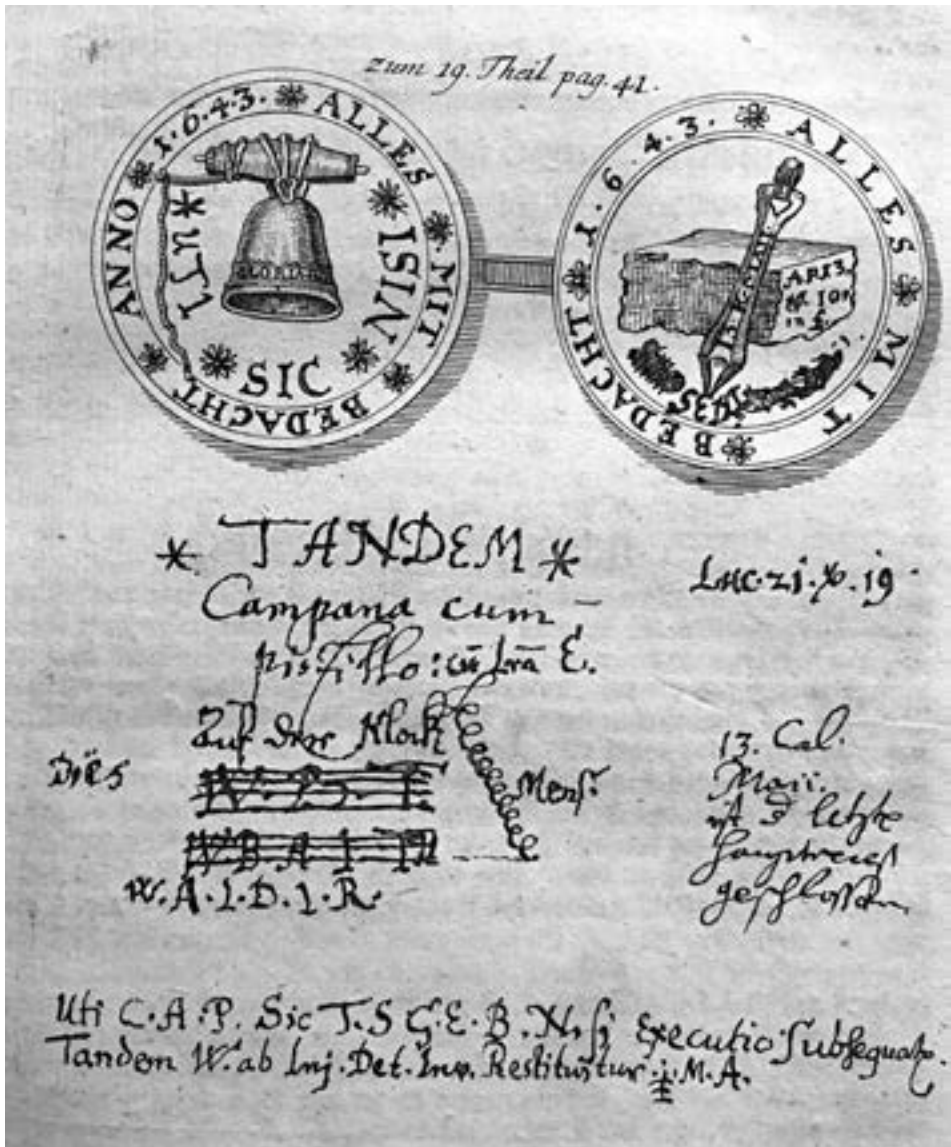 zum 19. Theil pag. 41.
ANNO 1.6.4.3. ALLES MIT BEDACHT
UTI SIC NISI
GLORIA
1.6.4.3. ALLES MIT BEDACHT
1635
* TANDEM *
Luc. 21. v. 19
Campana cum
pistillo: cū lrā E.
Auf der Klock
Dies
Mens.
13. Cal.
Maii.
ist letzte
geschlossen
W. A. I. D. I. R.
Uti C. A. P. Sic T. S G. E. B. Nisi Executio Subsequatr.
Tandem W. ab Inj. Det. Inv. Restituitur i. M. A.